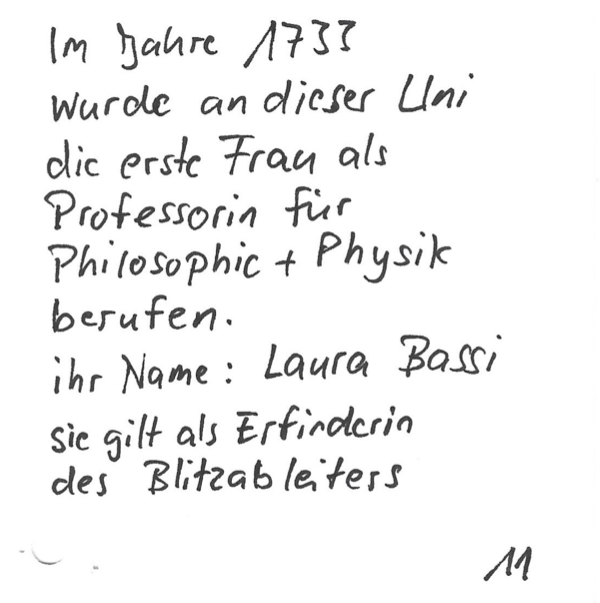 Im Jahre 1733
wurde an dieser Uni
die erste Frau als
Professorin für
Philosophie + Physik
berufen.
ihr Name: Laura Bassi
sie gilt als Erfinderin
des Blitzableiters
11